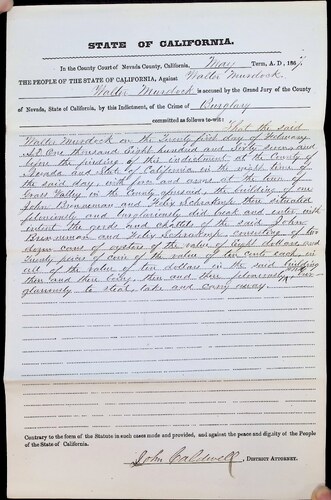 STATE OF CALIFORNIA.
In the County Court of Nevada County, California, May Term, A. D., 1867.
THE PEOPLE OF THE STATE OF CALIFORNIA, Against Walter Murdock.
Walter Murdock is accused by the Grand Jury of the County
of Nevada, State of California, by this Indictment, of the Crime of Burglary
committed as follows to-wit: That the said
Walter Murdock on the Twenty first day of February
A.D. One thousand Eight hundred and Sixty seven and
before the finding of this indictment at the County of
Nevada and State of California in the night time of
the said day, with force and arms at the town of
Grass Valley in the County aforesaid, the building of one
John Binseman and Felix Schraakup then situated
feloniously and burglariously did break and enter with
intent. The goods and chattels of the said John
and Felix Schraakup, consisting of two
dozen cans of oysters of the value of Eight dollars and
Twenty pieces of coin of the value of ten cents each, in
all of the value of ten dollars in the said building
then and there being, then and there feloniously and bur
glariously to steal, take and carry away.
Contrary to the form of the Statute in such cases made and provided, and against the peace and dignity of the People
of the State of California.
John Caldwell, DISTRICT ATTORNEY.